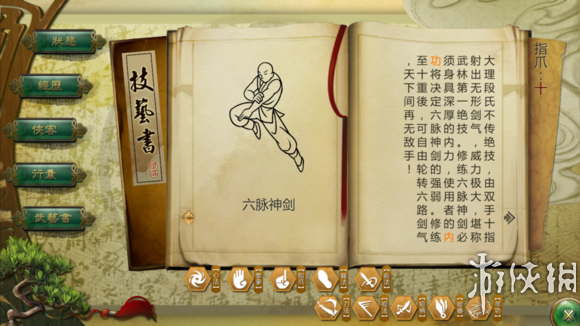 狀態
經歷
俠客
行囊
技藝書
技藝書
六脉神剑
指爪：十
大理段氏不传绝技，由双手十指
射出无形剑气，威力极大，堪称
武林第一绝技。修练六脉神剑必
须身具深厚的内力，使用者的内
功将决定六脉神剑的强弱。修练
至十重後，可自由轮转六路剑气
，天下间再无敌手！
游侠网